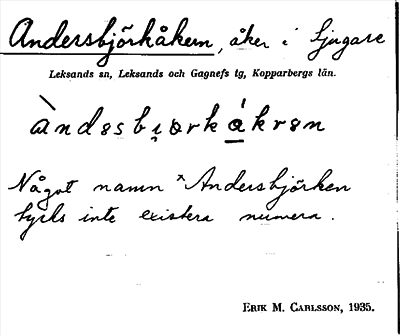 Andersbjörkåkern, åker i Ljugare
Leksands sn, Leksands och Gagnefs tg, Kopparbergs län.
Något namn *Andersbjörken
tycks inte existera numera.
ERIK M. CARLSSON, 1935.